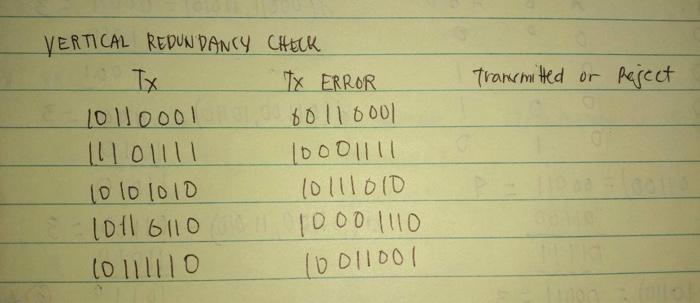 VERTICAL REDUNDANCY CHECK
Tx Tx ERROR Transmitted or Reject
10110001 00110001
11101111 10001111
10101010 10111010
10110110 10001110
10111110 10011001